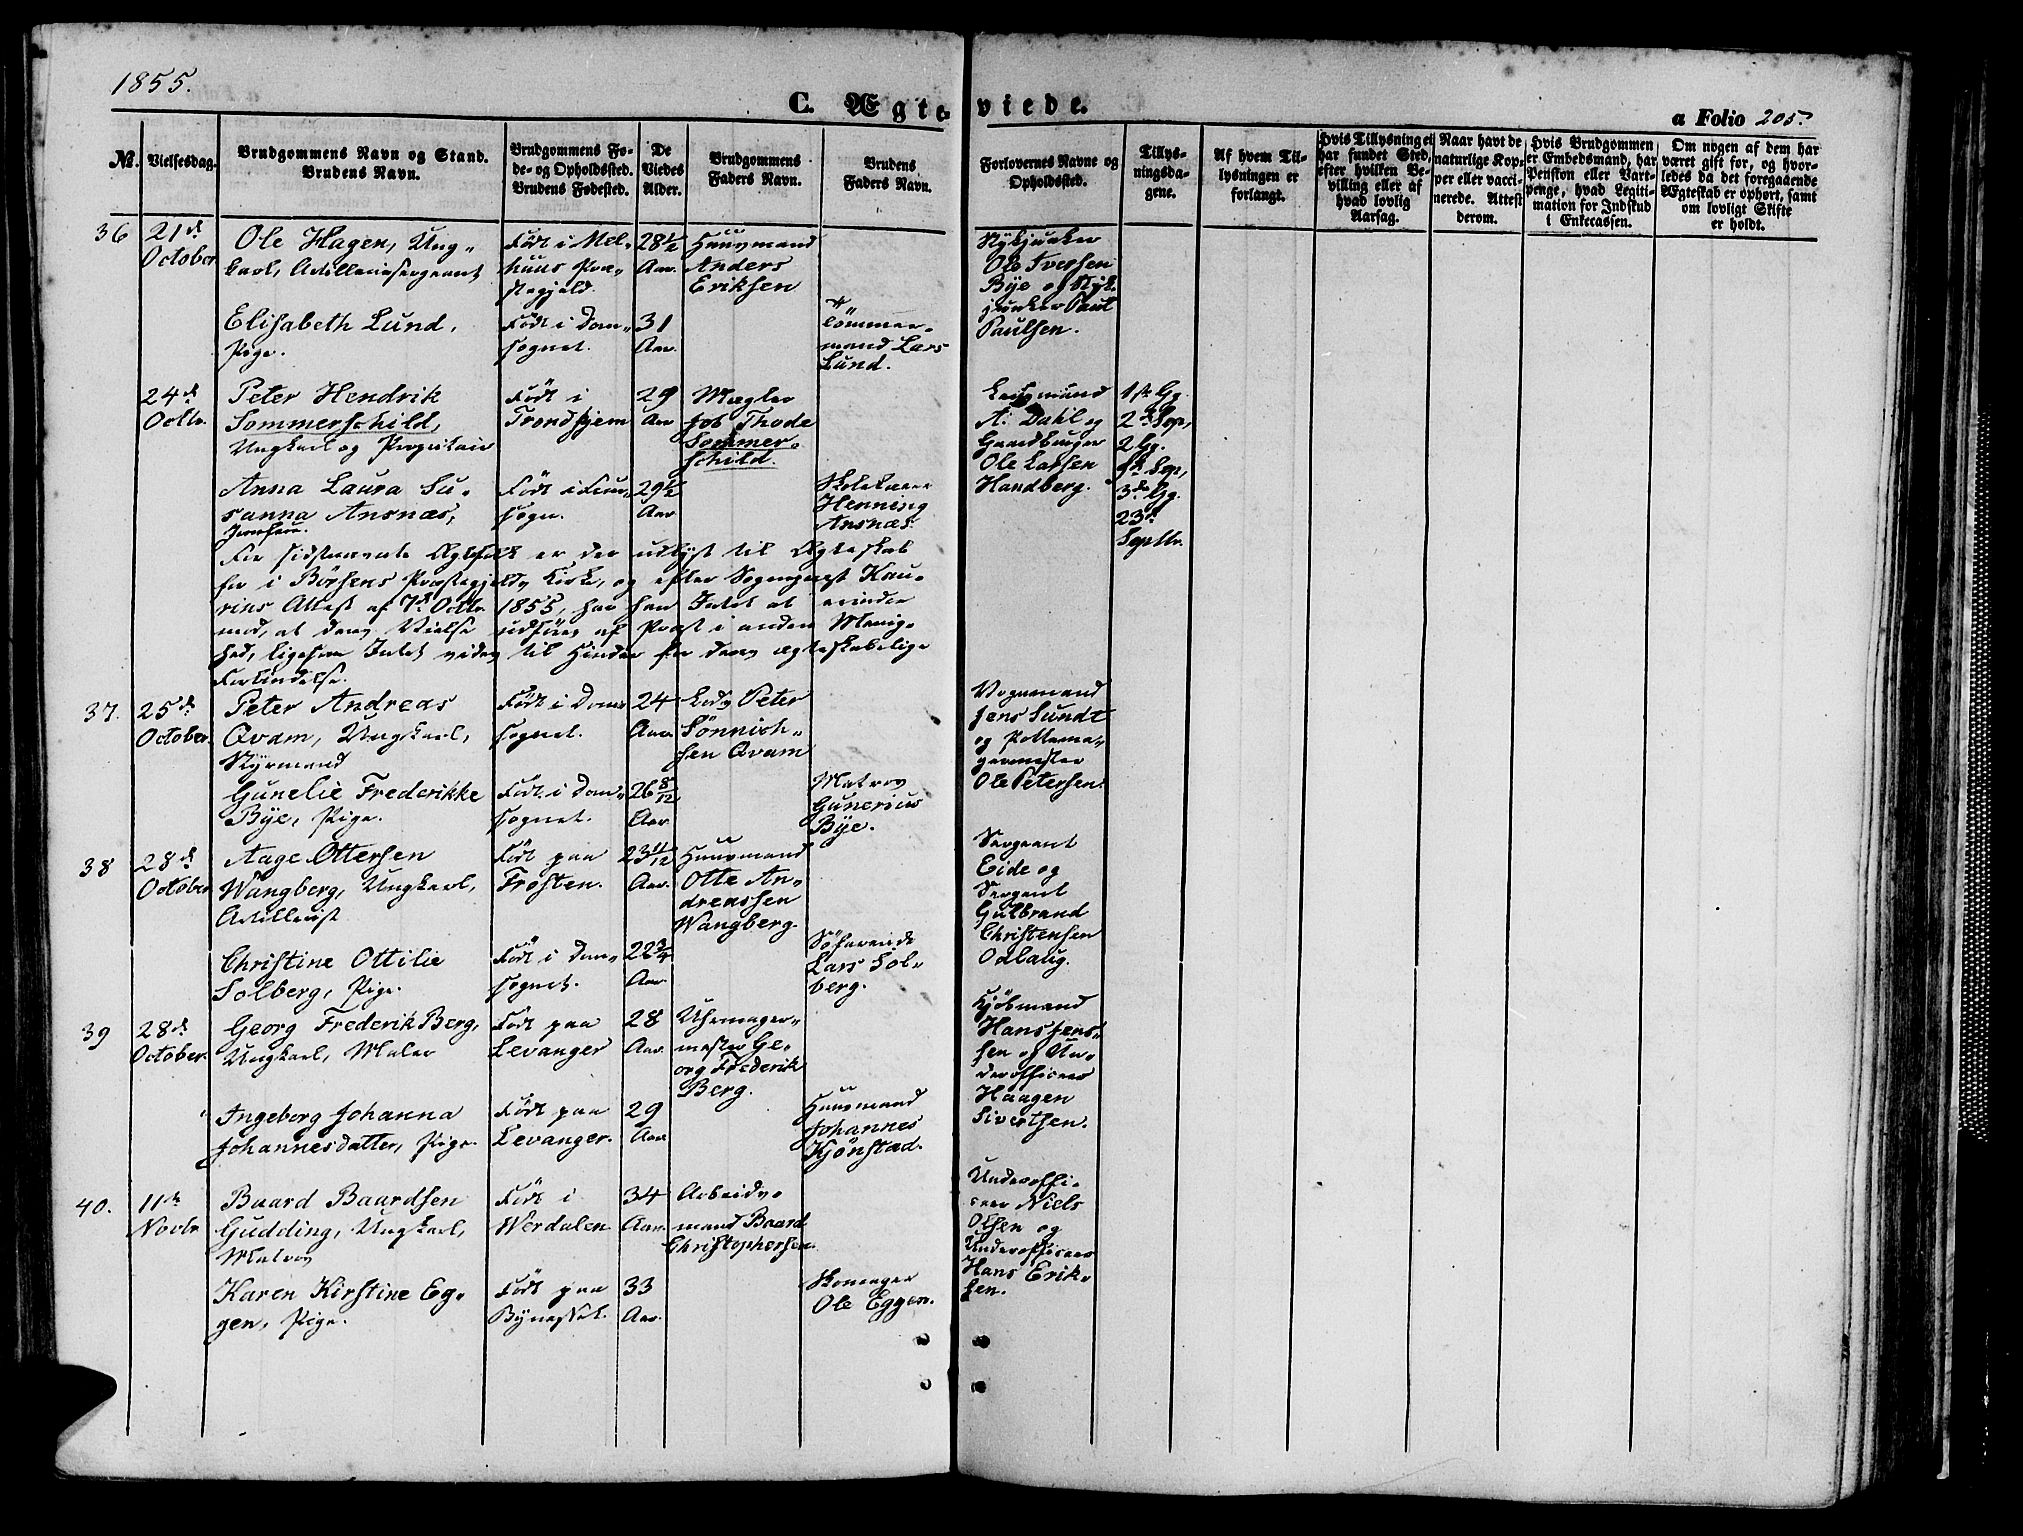 1855.
C. Ægteviede.
a Folio 205.
No.
Vielsesdag.
Brudgommens Navn og Stand.
Brudens Navn.
Brudgommens Fø-
de- og Opholdssted.
Brudens Fødested.
De
Viedes
Alder.
Brudgommens
Faders Navn.
Brudens
Faders Navn.
Forlovernes Navne og
Opholdssted.
Tillys-
ningsda-
gene.
Af hvem Til-
lysningen er
forlangt.
Hvis Tillysning ei
har fundet Sted,
efter hvilken Be-
villing eller af
hvad lovlig
Aarsag.
Naar havt de
naturlige Kop-
per eller vacci-
nerede. Attest
derom.
Hvis Brudgommen
er Embedsmand, har
Pension eller Vart-
penge, hvad Legiti-
mation for Indskud
i Enkecassen.
Om nogen af dem har
været gift før, og hvor-
ledes da det foregaaende
Ægteskab er ophørt, samt
om lovligt Skifte
er holdt.
36
21de
October
Ole Hagen, Ung-
karl, Artilleriesergeant
Født i Mel-
huus Præ-
stegjeld.
28½
Aar
Huusmand
Anders
Eriksen
Stykjunker
Ole Iversen
Bye og Styk-
junker Paul
Paulsen.
Elisabeth Lund,
Pige.
Født i Dom-
sognet.
31
Aar
Tömmer-
mand Lars
Lund.
24de
Octbr.
Peter Hendrik
Sommerschild,
Ungkarl og Proprietair
Født i
Trondhjem
29
Aar
Mægler
Job Thode
Sommer-
schild.
A. Dahl og
Gaardbruger
Ole Larsen
Handberg.
1ste Gg.
2den Sep,
2 Gg.
Sep,
3de Gg.
23de
Septbr.
Anna Laura Su-
sanna Ansnæs,
Født i
sogn.
29½
Aar
Skolelærer
Henning
Ansnæs
For sidstnævnte Ægtefolk er der udlyst til Ægteskab
før i Börsens Præstegjelds Kirke, og efter Sognepræst Kau-
rins Attest af 7de Octbr. 1855, har han Intet at erindre
mod, at deres Vielse udføres af Præst i anden Menig-
hed, ligesom Intet vides til Hinder for deres ægteskabelige
Forbindelse.
37.
25de
October.
Peter Andreas
Qvam, Ungkarl,
Styrmand
Født i Dom-
sognet.
24
Aar
Lods Peter
Sönnich-
sen Qvam
Vognmand
Jens Sundt
og Pottema-
germester
Ole Petersen.
Gunelie Frederikke
Bye, Pige.
Født i Dom-
sognet.
26 8/12
Aar
Matros
Gunerius
Bye.
38
28de
October
Aage Ottersen
Wangberg, Ungkarl,
Artillerist
Født paa
Frosten.
23 11/12
Aar.
Huusmand
Otte An-
dreassen
Wangberg.
Sergeant
Eide og
Sergent
Gulbrand
Christensen
Odlaug.
Christine Ottilie
Solberg, Pige.
Født i Dom-
sognet.
22¾
Aar
Söfarende
Lars Sol-
berg.
39
28de
October.
Georg Frederik Berg,
Ungkarl, Maler
Født paa
Levanger
28
Aar
Uhrmager-
mester Ge-
org Frederik
Berg.
Kjöbmand
Hans Jens-
sen og Un-
derofficeer
Haagen
Sivertsen.
Ingeborg Johanna
Johannesdatter, Pige.
Født paa
Levanger.
29
Aar
Huusmand
Johannes
Kjönstad.
40.
11de
Novbr
Baard Baardsen
Gudding, Ungkarl,
Matros
Født i
Werdalen.
34
Aar.
Arbeids-
mand Baard
Christophersen.
Underoffi-
ceer Niels
Olsen og
Underofficeer
Hans Erik-
sen.
Karen Kirstine Eg-
gen, Pige.
Født paa
Bynesset.
33
Aar.
Skomager
Ole Eggen.